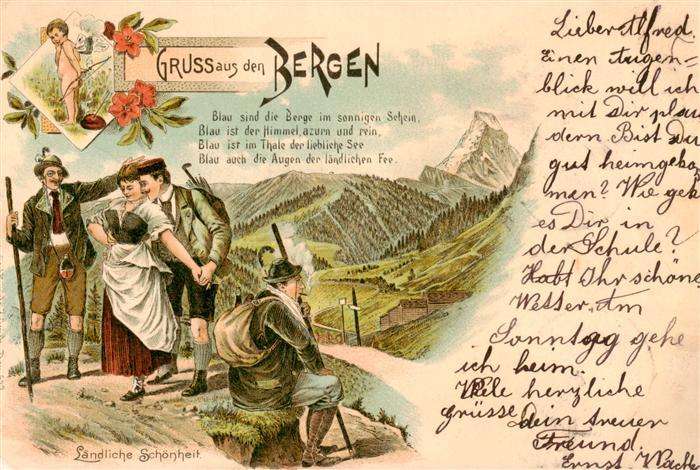 GRUSS aus den BERGEN
Blau sind die Berge im sonnigen Schein,
Blau ist der Himmel, azurn und rein,
Blau ist im Thale der liebliche See
Blau auch die Augen der ländlichen Fee.
Ländliche Schönheit.
Lieber Alfred.
Einen Augen=
blick will ich
mit Dir plau
dern Bist Du
gut heimgeko
men? Wie geh
es Dir in
der Schule?
Habt Ihr schöne
Wetter. Am
Sonntag gehe
ich heim.
Viele herzliche
grüsse Dein treuer
Freund.
Ernst